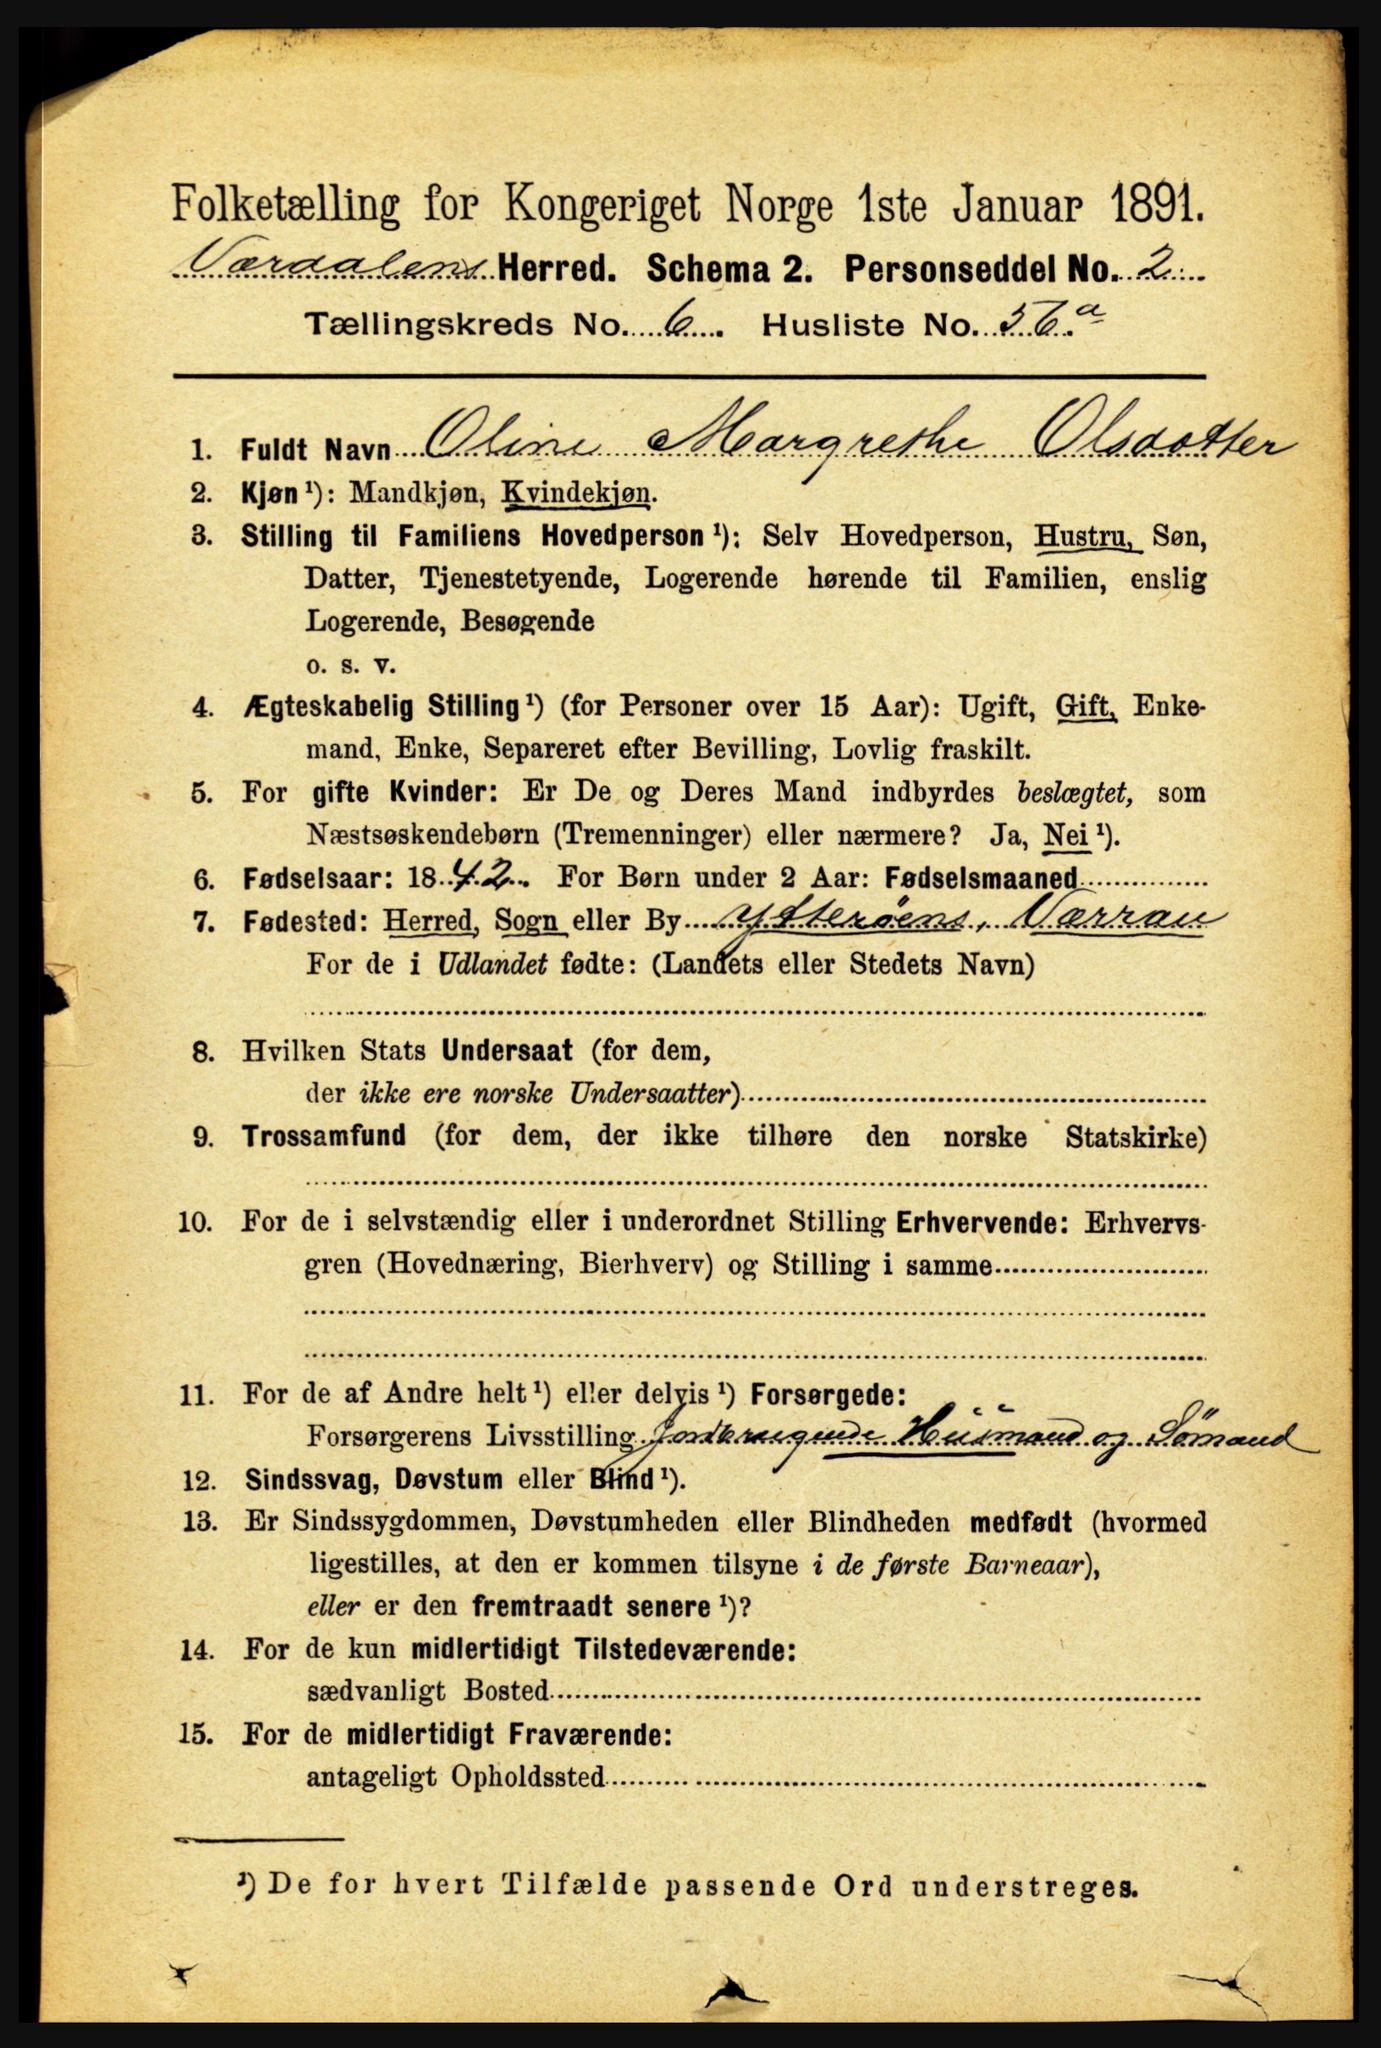 Folketælling for Kongeriget Norge 1ste Januar 1891.
Værdalens Herred. Schema 2. Personseddel No. 2
Tællingskreds No. 6. Husliste No. 56.a
1. Fuldt Navn Oline Margrethe Olsdatter
2. Kjøn ¹): Mandkjøn, Kvindekjøn.
3. Stilling til Familiens Hovedperson ¹): Selv Hovedperson, Hustru, Søn,
Datter, Tjenestetyende, Logerende hørende til Familien, enslig
Logerende, Besøgende
o. s. v.
4. Ægteskabelig Stilling ¹) (for Personer over 15 Aar): Ugift, Gift, Enke-
mand, Enke, Separeret efter Bevilling, Lovlig fraskilt.
5. For gifte Kvinder: Er De og Deres Mand indbyrdes beslægtet, som
Næstsøskendebørn (Tremenninger) eller nærmere? Ja, Nei ¹).
6. Fødselsaar: 1842. For Børn under 2 Aar: Fødselsmaaned
7. Fødested: Herred, Sogn eller By Ytterøens, Værran
For de i Udlandet fødte: (Landets eller Stedets Navn)
8. Hvilken Stats Undersaat (for dem,
der ikke ere norske Undersaatter)
9. Trossamfund (for dem, der ikke tilhøre den norske Statskirke)
10. For de i selvstændig eller i underordnet Stilling Erhvervende: Erhvervs-
gren (Hovednæring, Bierhverv) og Stilling i samme
11. For de af Andre helt ¹) eller delvis ¹) Forsørgede:
Forsørgerens Livsstilling Jordbrugende Husmand og Sømand
12. Sindssvag, Døvstum eller Blind ¹).
13. Er Sindssygdommen, Døvstumheden eller Blindheden medfødt (hvormed
ligestilles, at den er kommen tilsyne i de første Barneaar),
eller er den fremtraadt senere ¹)?
14. For de kun midlertidigt Tilstedeværende:
sædvanligt Bosted
15. For de midlertidigt Fraværende:
antageligt Opholdssted
¹) De for hvert Tilfælde passende Ord understreges.